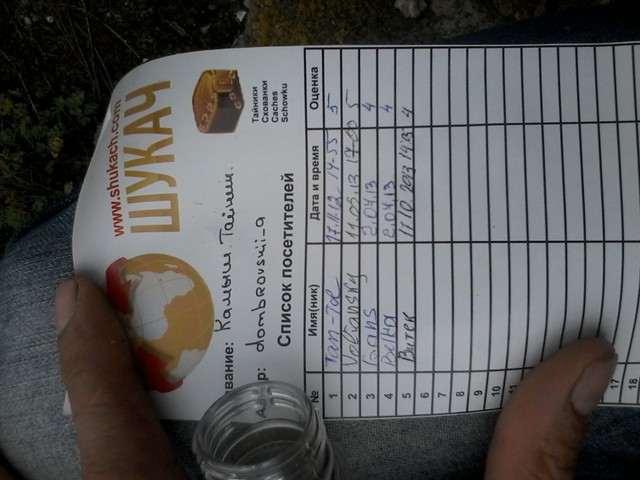 www.shukach.com
ШУКАЧ
Тайники
Схованки
Caches
Schowku
вание: Камыш. Тайник.
р: dombrovskij_a
Список посетителей
№ Имя(ник) Дата и время Оценка
1 14-55 5
2 Voliansky 11.05.13 17-00 5
3 Gans 2.04.13 4
4 2.04.13 4
5 Витек 11.10.2014 14:13 4
6
7
8
9
10
11
17
18